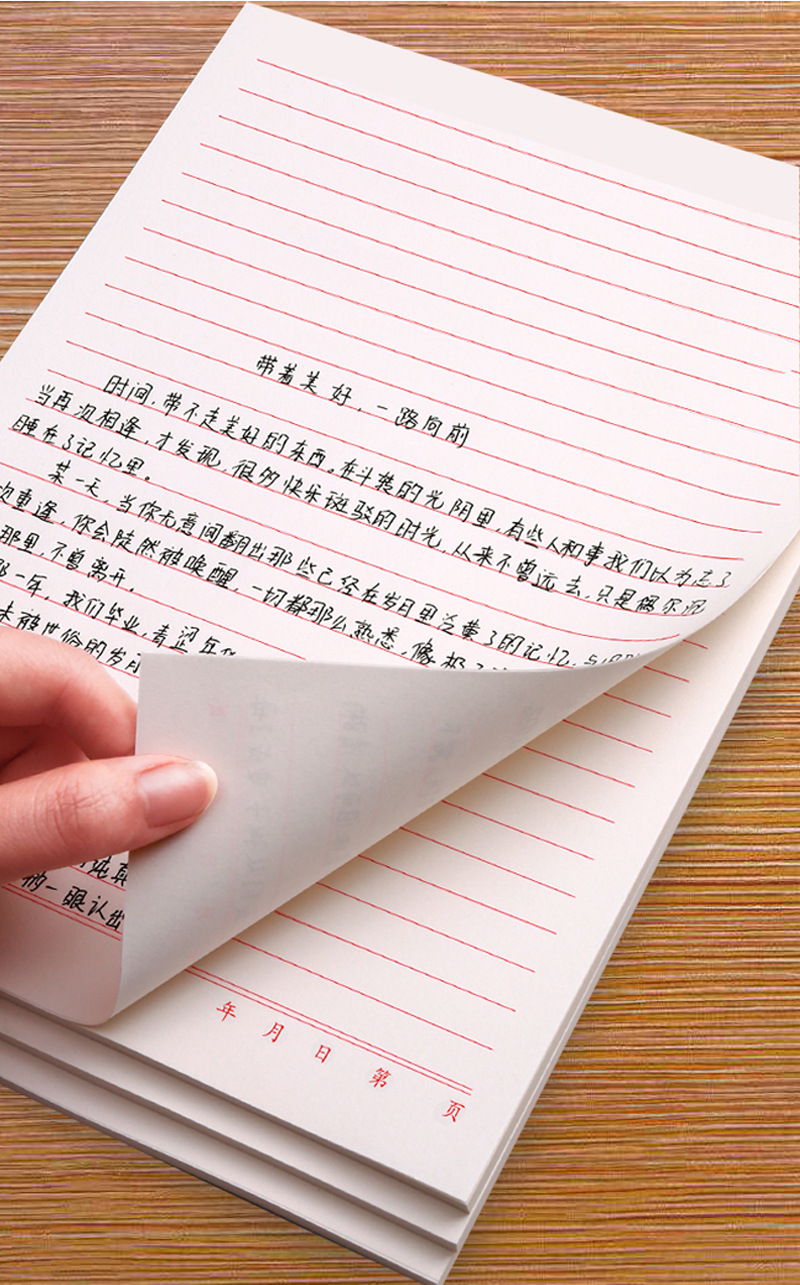 带着美好，一路向前
时间，带不走美好的东西。在斗转的光阴里，有些人和事我们以为忘了
当再次相逢，才发现，很多快乐斑驳的时光，从来不曾远去，只是偶尔沉
睡在了记忆里。
某一天，当你无意间翻出那些已经在岁月里泛黄了的记忆，与旧时
次重逢，你会陡然被唤醒，一切都那么熟悉，像极了
那里，不曾离开。
那一年，我们毕业，青涩年华
未被世俗的岁月
纯真
一眼认出
年 月 日 第 页